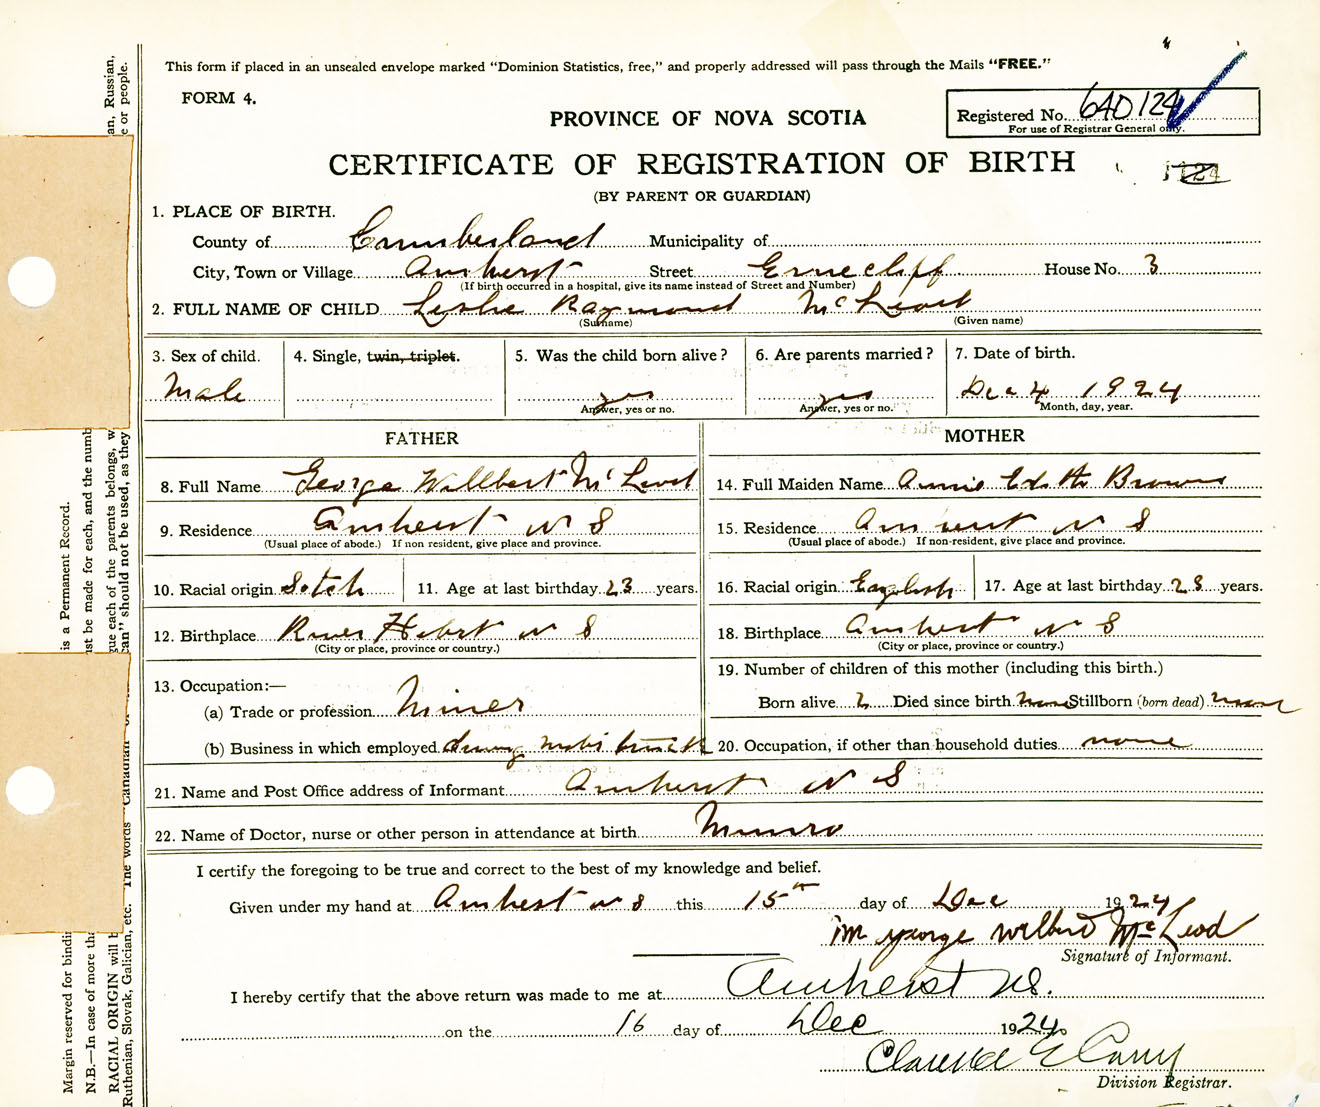 This form if placed in an unsealed envelope marked "Dominion Statistics, free," and properly addressed will pass through the Mails "FREE."
FORM 4.
PROVINCE OF NOVA SCOTIA
Registered No. 640124
For use of Registrar General only.
CERTIFICATE OF REGISTRATION OF BIRTH
(BY PARENT OR GUARDIAN)
1. PLACE OF BIRTH.
County of Cumberland Municipality of
City, Town or Village Amherst Street Ernecliff House No. 3
(If birth occurred in a hospital, give its name instead of Street and Number)
2. FULL NAME OF CHILD Leslie Raymond McLeod
(Surname) (Given name)
3. Sex of child. 4. Single, twin, triplet. 5. Was the child born alive? 6. Are parents married? 7. Date of birth.
Male yes yes Dec 4 1924
Answer, yes or no. Answer, yes or no. Month, day, year.
FATHER MOTHER
8. Full Name George Willbert McLeod 14. Full Maiden Name Annie Edith Brown
9. Residence Amherst N S 15. Residence Amherst N S
(Usual place of abode.) If non resident, give place and province. (Usual place of abode.) If non-resident, give place and province.
10. Racial origin Sotch 11. Age at last birthday 23 years. 16. Racial origin English 17. Age at last birthday 23 years.
12. Birthplace River Hebert N S 18. Birthplace Amherst N S
(City or place, province or country.) (City or place, province or country.)
19. Number of children of this mother (including this birth.)
13. Occupation:—
(a) Trade or profession Miner Born alive 2 Died since birth none Stillborn (born dead) none
(b) Business in which employed 20. Occupation, if other than household duties none
21. Name and Post Office address of Informant Amherst N S
22. Name of Doctor, nurse or other person in attendance at birth Munro
I certify the foregoing to be true and correct to the best of my knowledge and belief.
Given under my hand at Amherst N S this 15th day of Dec 1924
George Wilbert McLeod
Signature of Informant.
I hereby certify that the above return was made to me at Amherst NS.
on the 16 day of Dec 1924
Clarence E
Division Registrar.
Margin reserved for bindin
is a Permanent Record.
N.B.—In case of more tha
ust be made for each, and the numb
RACIAL ORIGIN will b
gue each of the parents belongs, w
an, Russian,
Ruthenian, Slovak, Galician, etc. The words
can" should not be used, as they
e or people.